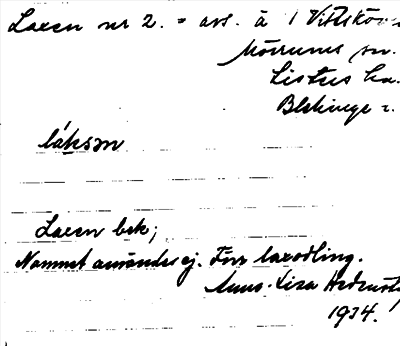 Laxen nr 2. = avs. å 1 Vittskövle
Mörrums sn.
Listers hd.
Blekinge l.
láksən
Laxen bek;
Namnet användes ej. Förr laxodling.
Anna-Lisa
1934.